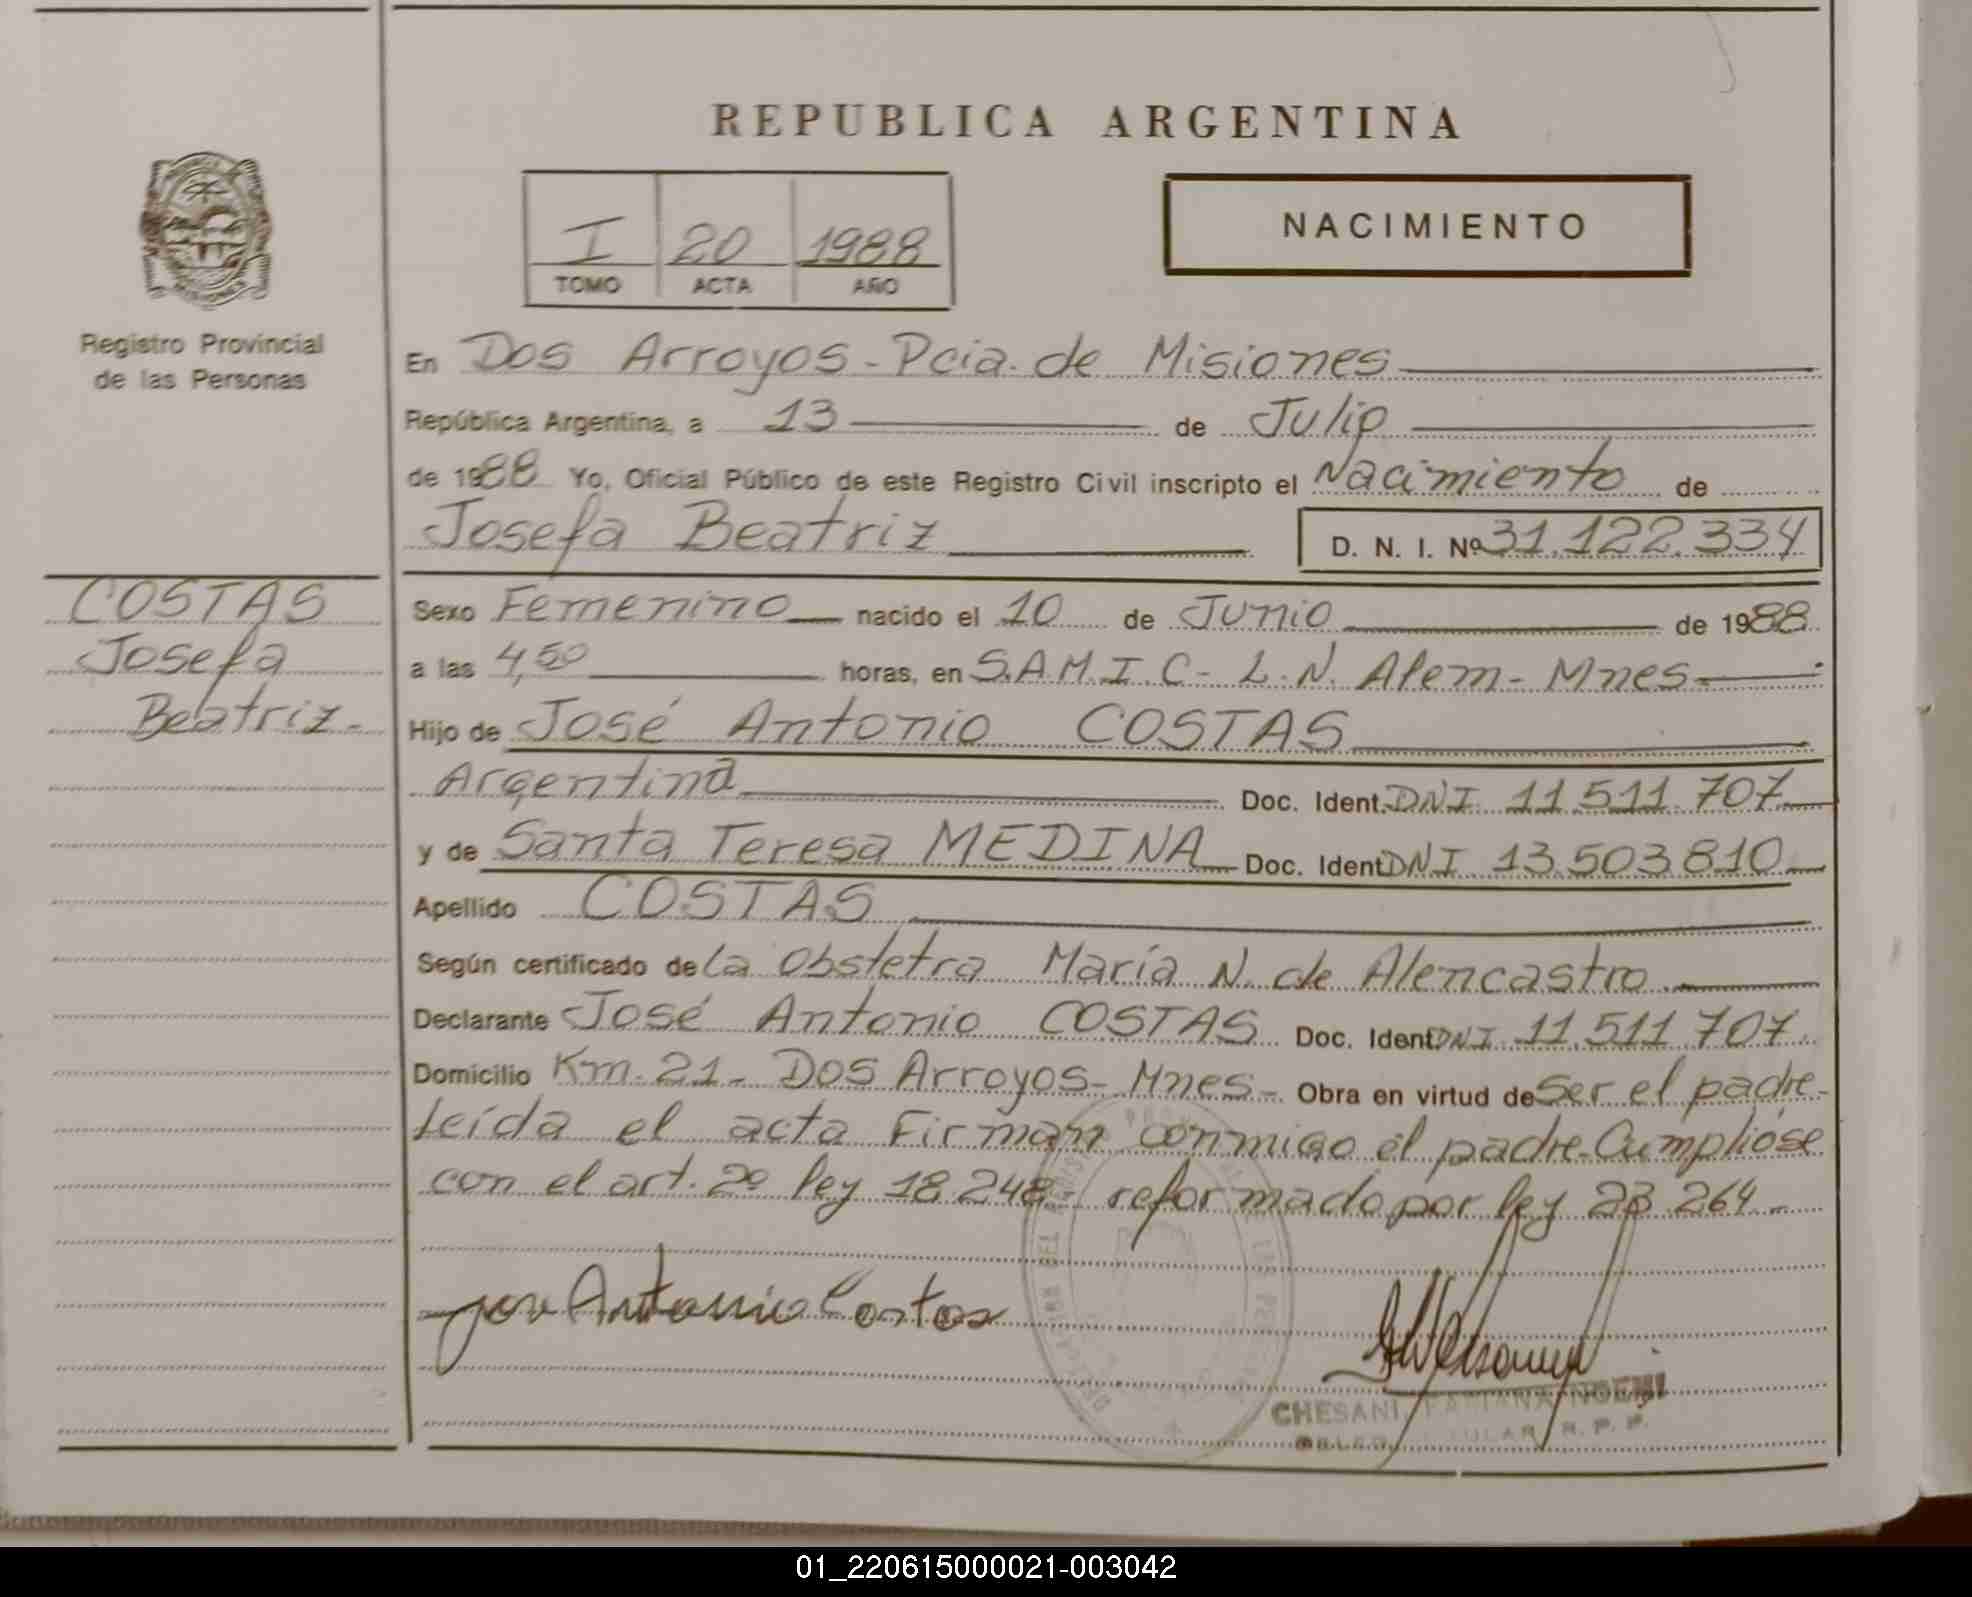 REPUBLICA ARGENTINA
I 20 1988
TOMO ACTA AÑO
NACIMIENTO
Registro Provincial
de las Personas
COSTAS
Josefa
Beatriz.-
En Dos Arroyos - Pcia. de Misiones
República Argentina, a 13 de Julio
de 1988 Yo, Oficial Público de este Registro Civil inscripto el Nacimiento de
Josefa Beatriz D. N. I. Nº 31.122.334
Sexo Femenino nacido el 10 de Junio de 1988
a las 4,50 horas, en S.A.M.I.C - L.N. Alem - Mnes.
Hijo de José Antonio COSTAS
Argentina Doc. Ident. DNI 11.511.707
y de Santa Teresa MEDINA Doc. Ident. DNI 13.503.810
Apellido COSTAS
Según certificado de la Obstetra María N. de Alencastro
Declarante José Antonio COSTAS Doc. Ident. DNI 11.511.707
Domicilio Km. 21 - Dos Arroyos - Mnes - Obra en virtud de Ser el padre-
Leída el acta Firman conmigo el padre. Cumpliose
con el art. 2º ley 18.248 reformado por ley 23.264.-
Jose Antonio Costas
CHESANI, FABIANA NOEMI
R. P. P.
01_220615000021-003042